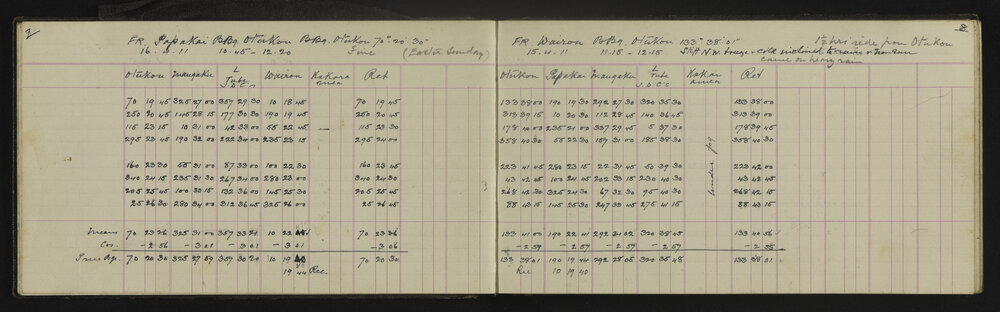 2
FR Papakai BBq. Otukou BBq. Otukou 70° 20' 30"
16. 4. 11 10.45 - 12.20 Fine (Easter Sunday)
Otukou Maugaku L Tube J.D.Cs Wairou Kakara mea Ret
70 19 45 325 27 00 357 29 30 10 18 45 70 19 45
250 20 45 145 28 15 177 30 30 190 19 45 250 20 45
115 23 15 10 31 00 42 33 00 55 22 45 115 23 30
295 23 45 190 32 00 222 34 00 235 23 15 295 24 00
160 23 30 55 31 00 87 33 00 100 22 30 160 23 45
340 24 15 235 31 30 267 34 00 280 23 00 340 24 30
205 25 45 100 33 15 132 36 00 145 25 30 205 25 45
25 26 30 280 34 00 312 36 45 325 26 00 25 26 45
Means 70 23 26 325 31 00 357 33 29 10 22 70 23 36
Cor. - 2 56 - 3 01 - 3 01 - 3 01 - 3 06
True Bg. 70 20 30 325 27 59 357 30 28 10 19 40 70 20 30
19 44 Rec.
3
FR Wairou BBq. Otukou 133° 38' 01" 1½ hrs ride from Otukou
15. 4. 11 11.15 - 12.15 Stiff N.W. breeze & cold inclined to rain
came on heavy rain
Otukou Papakai Maugaku L Tube J.D.Cs Kakara mea Ret
133 38 00 190 19 30 292 27 30 320 35 30 133 38 00
313 39 15 10 20 30 112 28 45 140 36 45 313 39 00
178 40 00 235 21 00 337 29 45 5 37 30 178 39 45
358 40 30 55 22 30 157 31 00 185 38 30 358 40 30
under fog
223 41 45 280 23 15 22 31 45 50 39 30 223 42 00
43 42 45 100 24 45 202 33 15 230 40 30 43 42 45
268 42 30 325 24 30 67 32 30 95 40 30 268 42 15
88 43 15 145 25 30 247 33 45 275 41 15 88 43 15
133 41 00 190 22 41 292 31 02 320 38 45 133 40 56
- 2 59 - 2 57 - 2 57 - 2 57 - 2 55
133 38 01 190 19 44 292 28 05 320 35 48 133 38 01
Rec 10 19 40